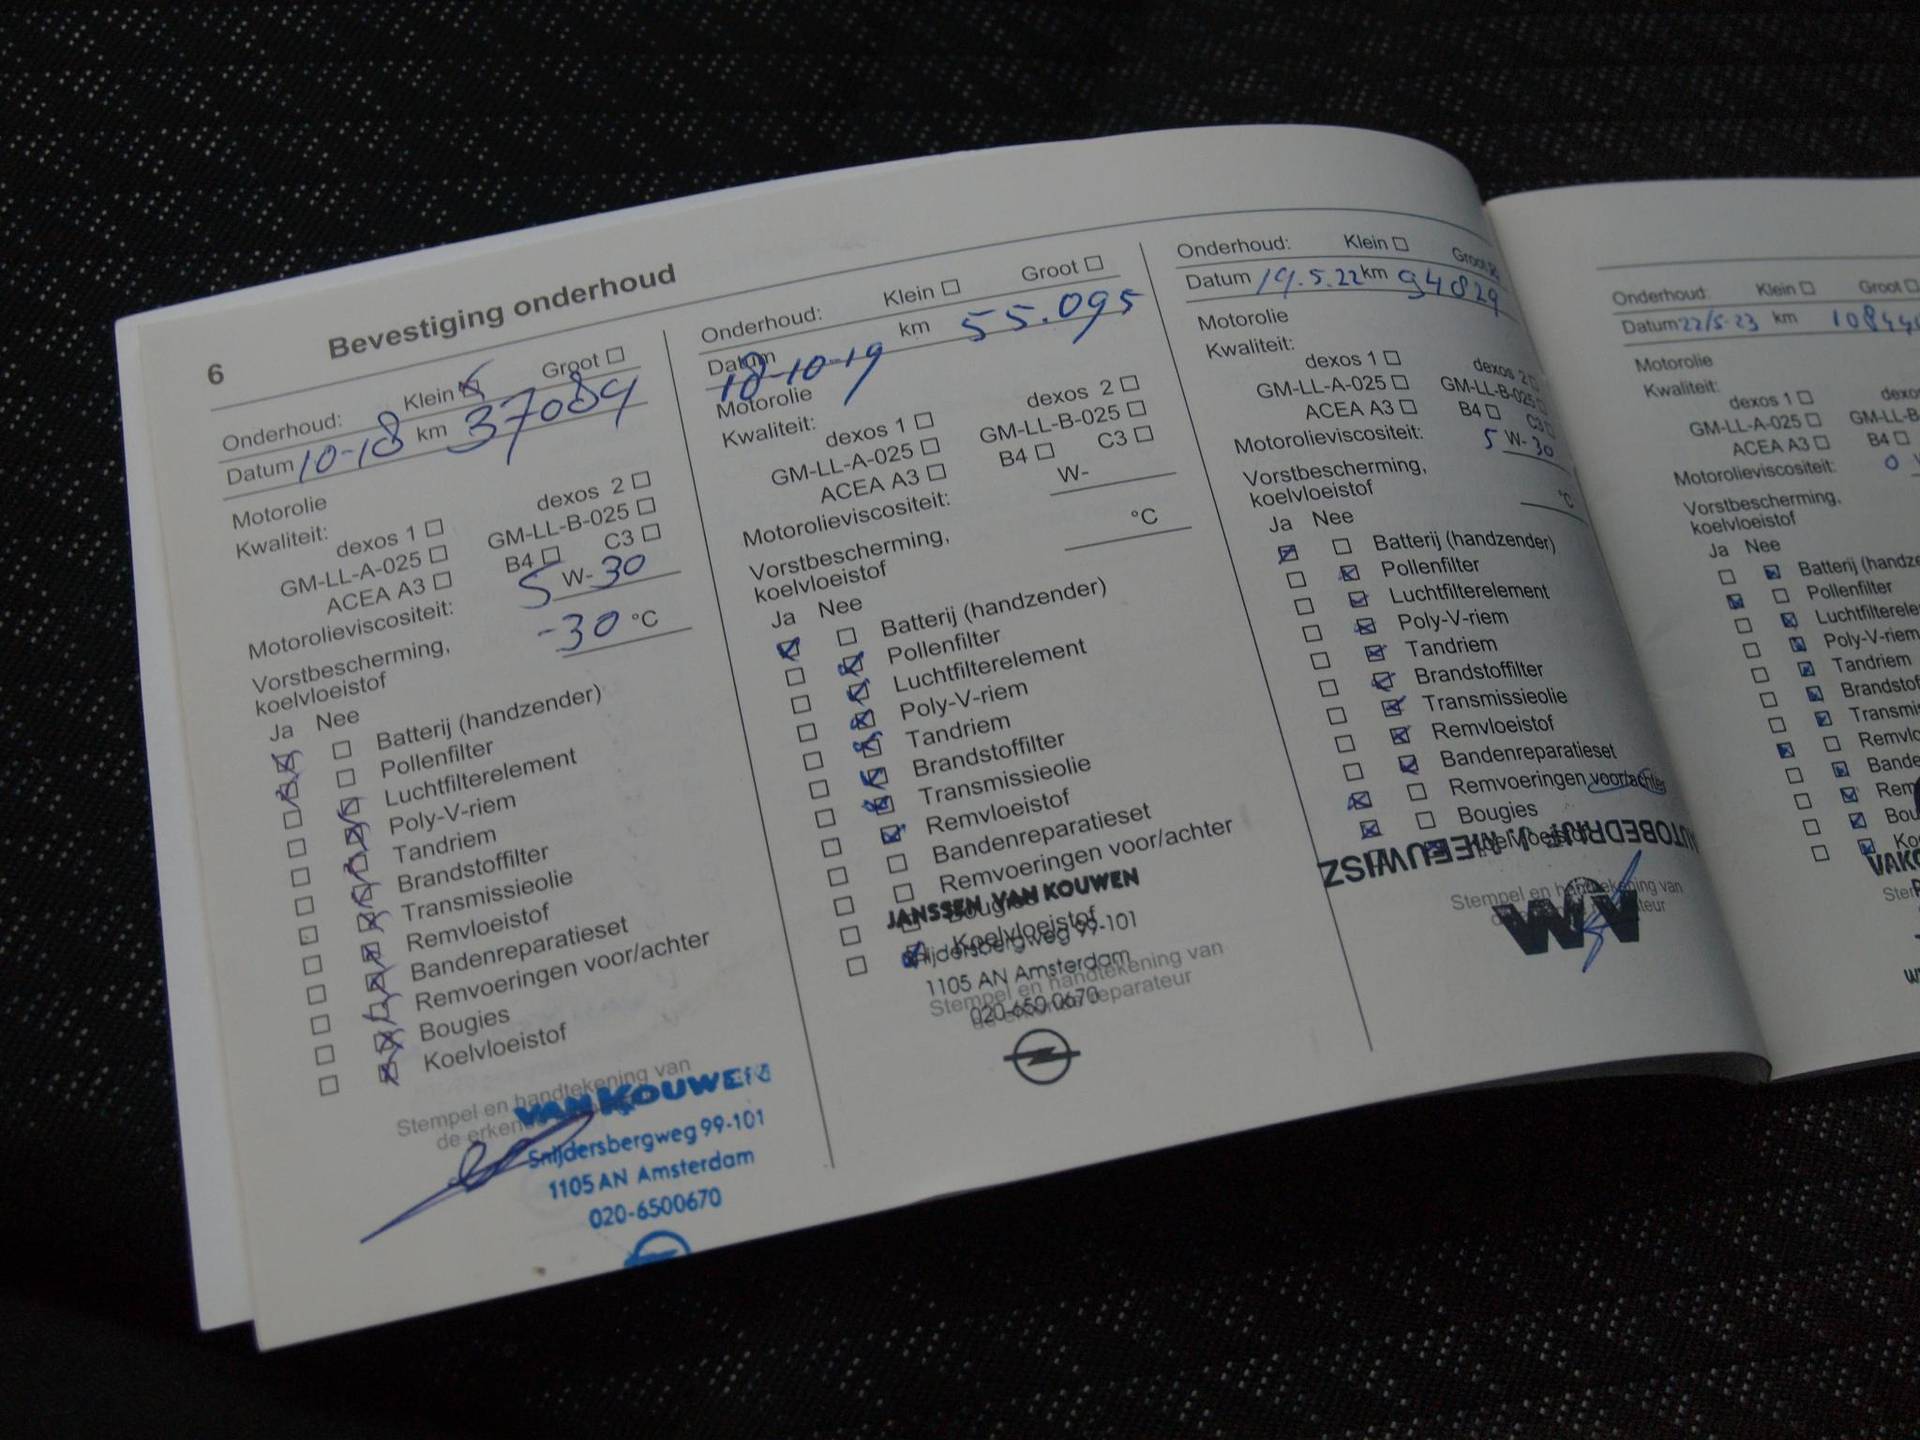 6
Bevestiging onderhoud
Onderhoud: Klein Groot
Datum 10-18 km 37089
Motorolie
Kwaliteit: dexos 1 dexos 2
GM-LL-A-025 GM-LL-B-025
ACEA A3 B4 C3
Motorolieviscositeit: 5 W- 30
Vorstbescherming,
koelvloeistof -30 °C
Ja Nee
Batterij (handzender)
Pollenfilter
Luchtfilterelement
Poly-V-riem
Tandriem
Brandstoffilter
Transmissieolie
Remvloeistof
Bandenreparatieset
Remvoeringen voor/achter
Bougies
Koelvloeistof
Stempel en handtekening van
de
VAN KOUWEN
Snijdersbergweg 99-101
1105 AN Amsterdam
020-6500670
Onderhoud: Klein Groot
Datum 18-10-19 km 55.095
Motorolie
Kwaliteit: dexos 1 dexos 2
GM-LL-A-025 GM-LL-B-025
ACEA A3 B4 C3
Motorolieviscositeit: W-
Vorstbescherming,
koelvloeistof °C
Ja Nee
Batterij (handzender)
Pollenfilter
Luchtfilterelement
Poly-V-riem
Tandriem
Brandstoffilter
Transmissieolie
Remvloeistof
Bandenreparatieset
Remvoeringen voor/achter
Bougies
Koelvloeistof
JANSSEN VAN KOUWEN
Snijdersbergweg 99-101
1105 AN Amsterdam
020-650 0670
Stempel en handtekening van
de reparateur
Onderhoud: Klein Groot
Datum 19.5.22 km 94829
Motorolie
Kwaliteit: dexos 1 dexos 2
GM-LL-A-025 GM-LL-B-025
ACEA A3 B4 C3
Motorolieviscositeit: 5 W- 30
Vorstbescherming,
koelvloeistof °C
Ja Nee
Batterij (handzender)
Pollenfilter
Luchtfilterelement
Poly-V-riem
Tandriem
Brandstoffilter
Transmissieolie
Remvloeistof
Bandenreparatieset
Remvoeringen voor/achter
Bougies
Koelvloeistof
AUTOBEDRIJF J. MEEUWISZ
Stempel en handtekening van
Onderhoud: Klein Groot
Datum 22/5-23 km
Motorolie
Kwaliteit: dexos 1 dexos
GM-LL-A-025 GM-LL-B
ACEA A3 B4
Motorolieviscositeit: 0
Vorstbescherming,
koelvloeistof
Ja Nee
Batterij (handze
Pollenfilter
Luchtfilterele
Poly-V-riem
Tandriem
Brandstof
Transmis
Remvlo
Bande
Rem
Bou
Ko